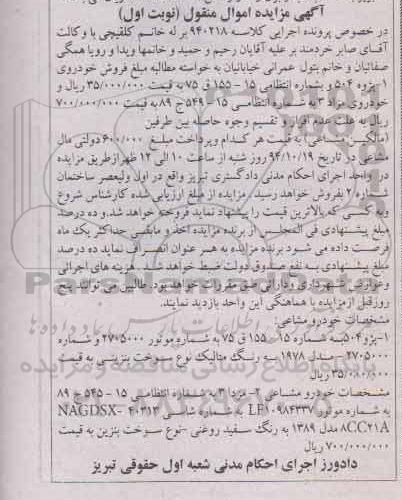 آگهی مزایده اموال منقول (نوبت اول)
در خصوص پرونده اجرایی کلاسه ۹۴۰۲۱۸ بر له خانم کلفیچی با وکالت
آقای صابر خردمند بر علیه آقایان رحیم و حمید و خانمها ویدا و رویا همگی
صفائیان و خانم بتول عمرانی خیابانیان به خواسته مطالبه مبلغ فروش خودروی
۱- پژوه ۵۰۴ و بشماره انتظامی ۱۵ - ۱۵۵ ق ۷۵ به قیمت ۳۵/۰۰۰/۰۰۰ ریال و
خودروی مزدا ۳ به شماره انتظامی ۱۵ - ۵۴۹ ج ۸۹ به قیمت ۷۰۰/۰۰۰/۰۰۰
ریال به علت عدم افراز و تقسیم وجوه حاصله بین طرفین
(مالکین مشاعی) به قیمت هر کدام و پرداخت مبلغ ۶۰۰/۰۰۰ دولتی مال
مشاعی در تاریخ ۹۴/۱۰/۱۹ روز شنبه از ساعت ۱۰ الی ۱۲ ظهر از طریق مزایده
در واحد اجرای احکام مدنی دادگستری تبریز واقع در اول ولیعصر ساختمان
شماره ۲ بفروش خواهد رسید. مزایده از مبلغ ارزیابی شده کارشناس شروع
و به کسی که بالاترین قیمت را پیشنهاد نماید فروخته خواهد شد. و ده درصد
مبلغ پیشنهادی فی المجلس از برنده مزایده اخذ و مابقی حداکثر یک ماه
فرصت داده می شود برنده مزایده به هر عنوان انصراف نماید ده درصد
مبلغ پیشنهادی به نفع صندوق دولت ضبط خواهد شد. هزینه های اجرائی
و عوارض شهرداری و دارائی طبق مقررات خواهد بود. طالبین می توانند پنج
روز قبل از مزایده با هماهنگی این واحد بازدید نمایند.
مشخصات خودرو مشاعی:
۱- پژو ۵۰۴ به شماره ۱۵ - ۱۵۵ ق ۷۵ به شماره موتور ۲۷۰۵۰۰۰ و شماره
۲۷۰۵۰۰۰ - مدل ۱۹۷۸ به رنگ متالیک نوع سوخت بنزینی به قیمت
ریال
مشخصات خودرو مشاعی ۲- مزدا ۳ به شماره انتظامی ۱۵ - ۵۴۵ ج ۸۹
به شماره موتور LF۱۰۹۸۴۳۳۷ به شماره شاسی NAGDSX-۴۰۳۱۳
۸CC۲۱A مدل ۱۳۸۹ به رنگ سفید روغنی - نوع سوخت بنزین به قیمت
۷۰۰/۰۰۰/۰۰۰ ریال
دادورز اجرای احکام مدنی شعبه اول حقوقی تبریز